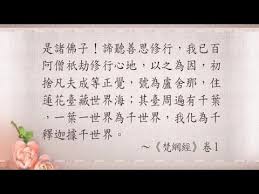 是諸佛子！諦聽善思修行，我已百
阿僧祇劫修行心地，以之為因，初
捨凡夫成等正覺，號為盧舍那，住
蓮花臺藏世界海；其臺周遍有千葉
，一葉一世界為千世界，我化為千
釋迦據千世界。
～《梵網經》卷1